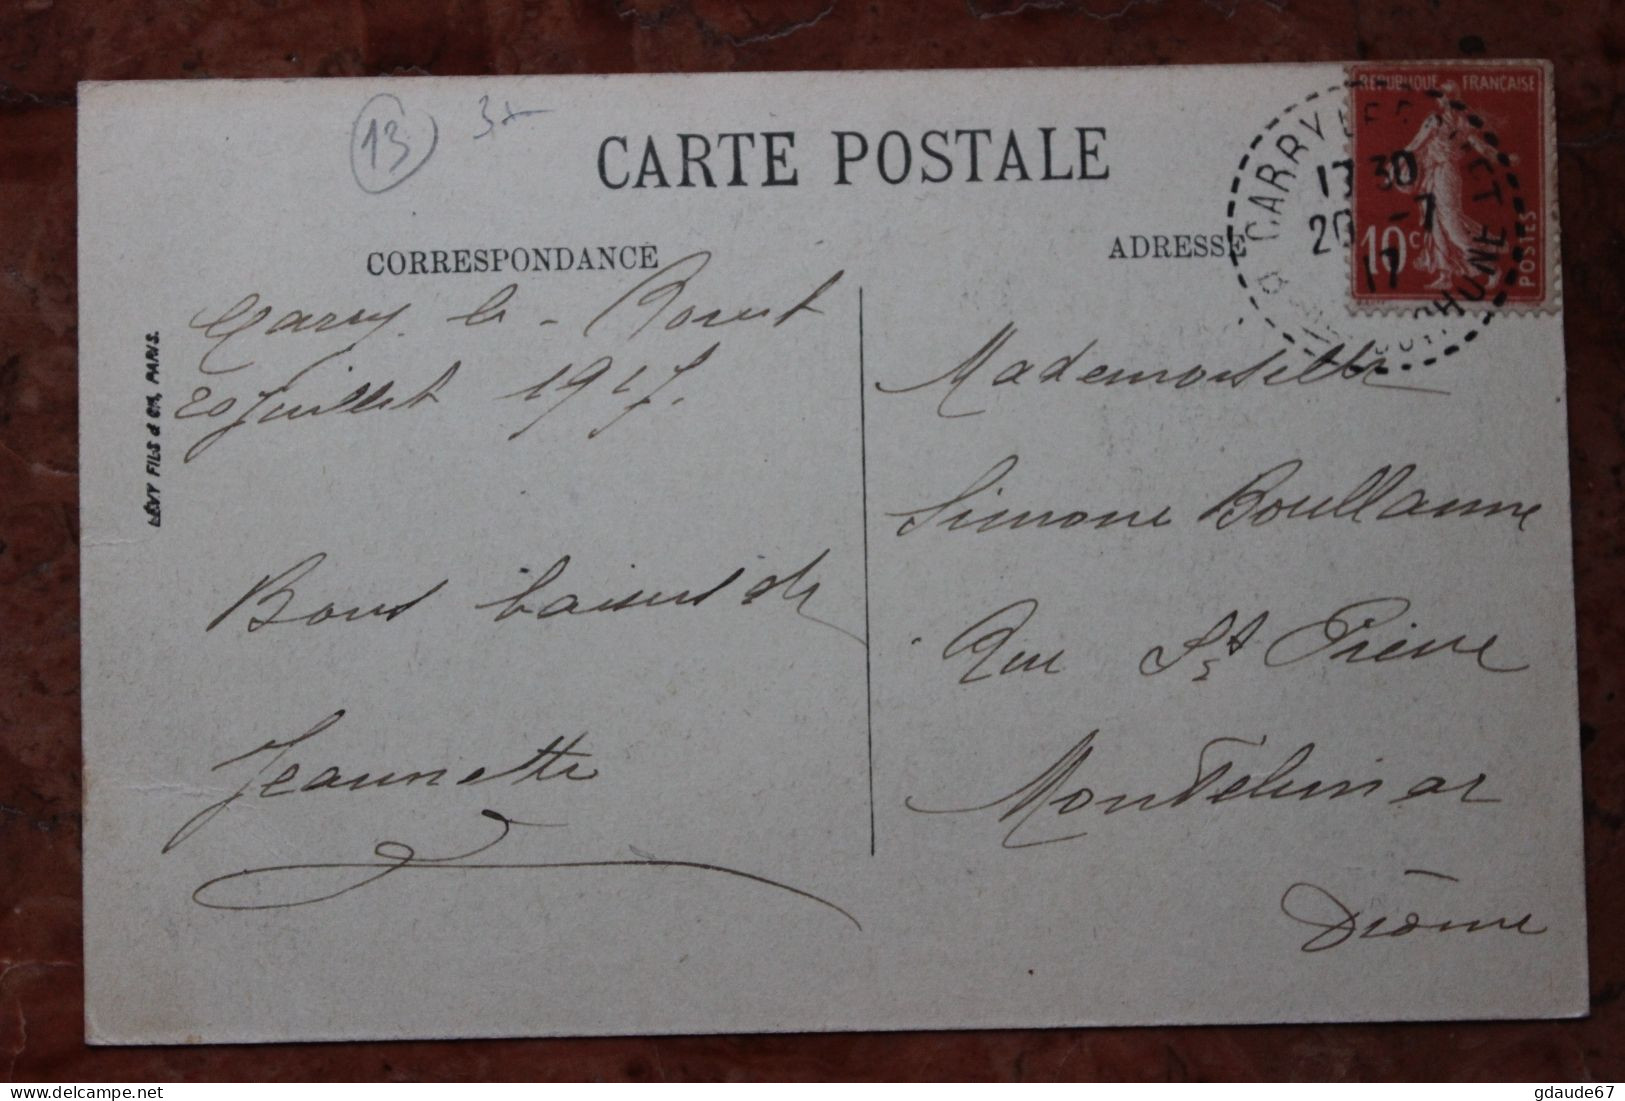 13
CARTE POSTALE
CORRESPONDANCE
ADRESSE
REPUBLIQUE FRANÇAISE
10 c
POSTES
CARRY LE ROUET
13 30
20 -7
17
B-DU-RHONE
LÉVY FILS & Cie, PARIS.
Carry le - Rouet
20 Juillet 1917.
Bons baisers de
Jeannette
Mademoiselle
Simone Boullanne
Rue St Pierre
Montelimar
Drôme
delcampe.net
gdaude67